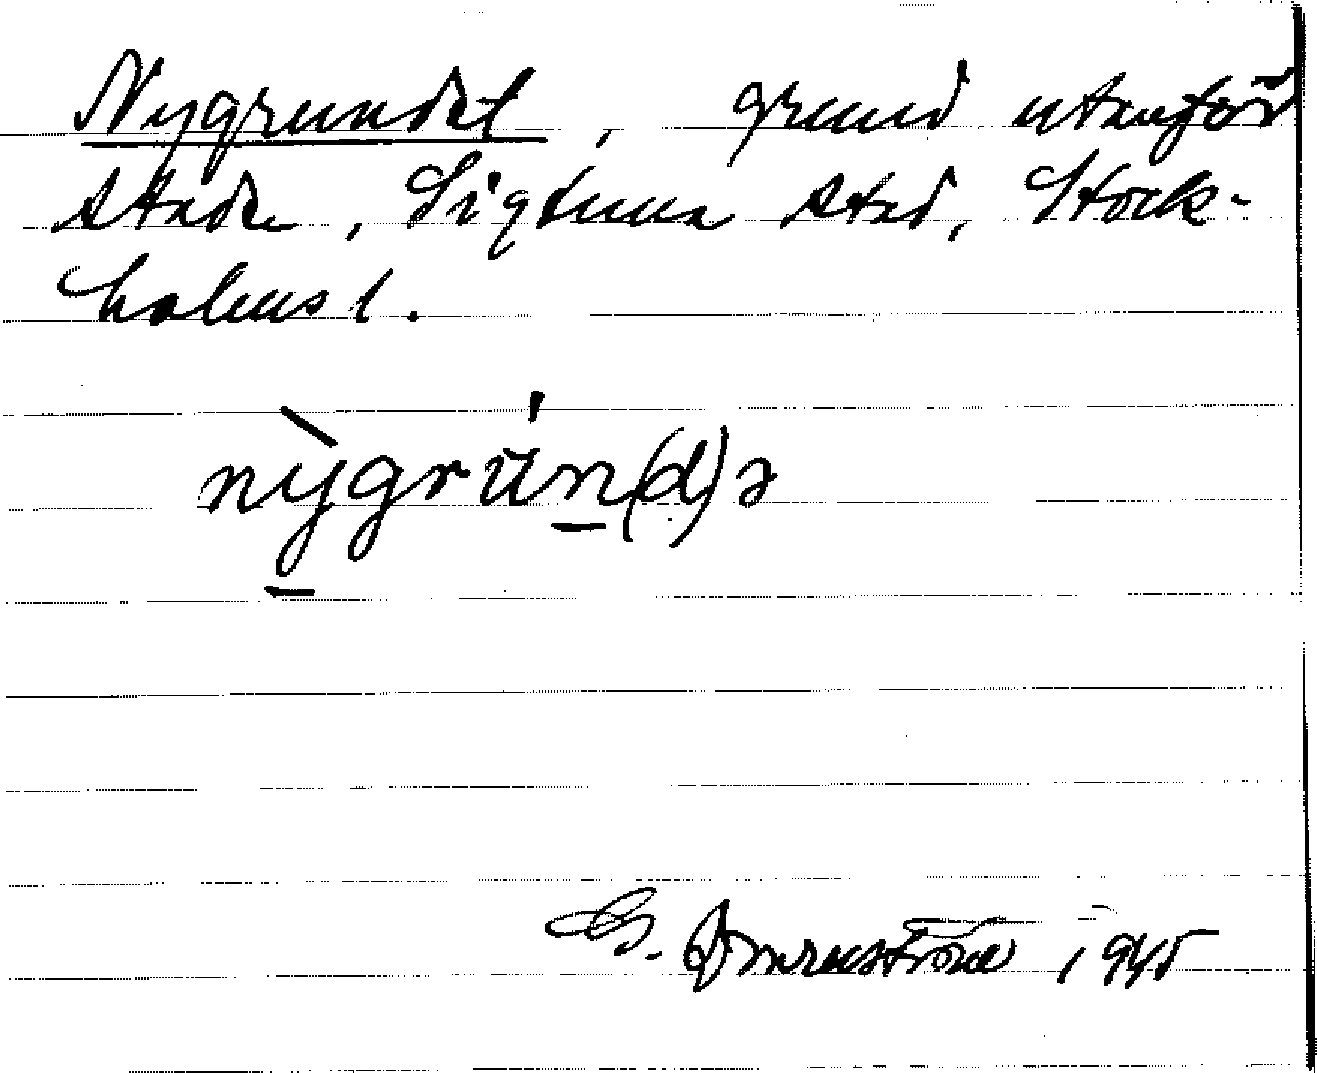 Nygrundet, grund utanför
staden, Sigtuna stad, Stock-
holms l.
nỳgrún(d)ə
G. 1945